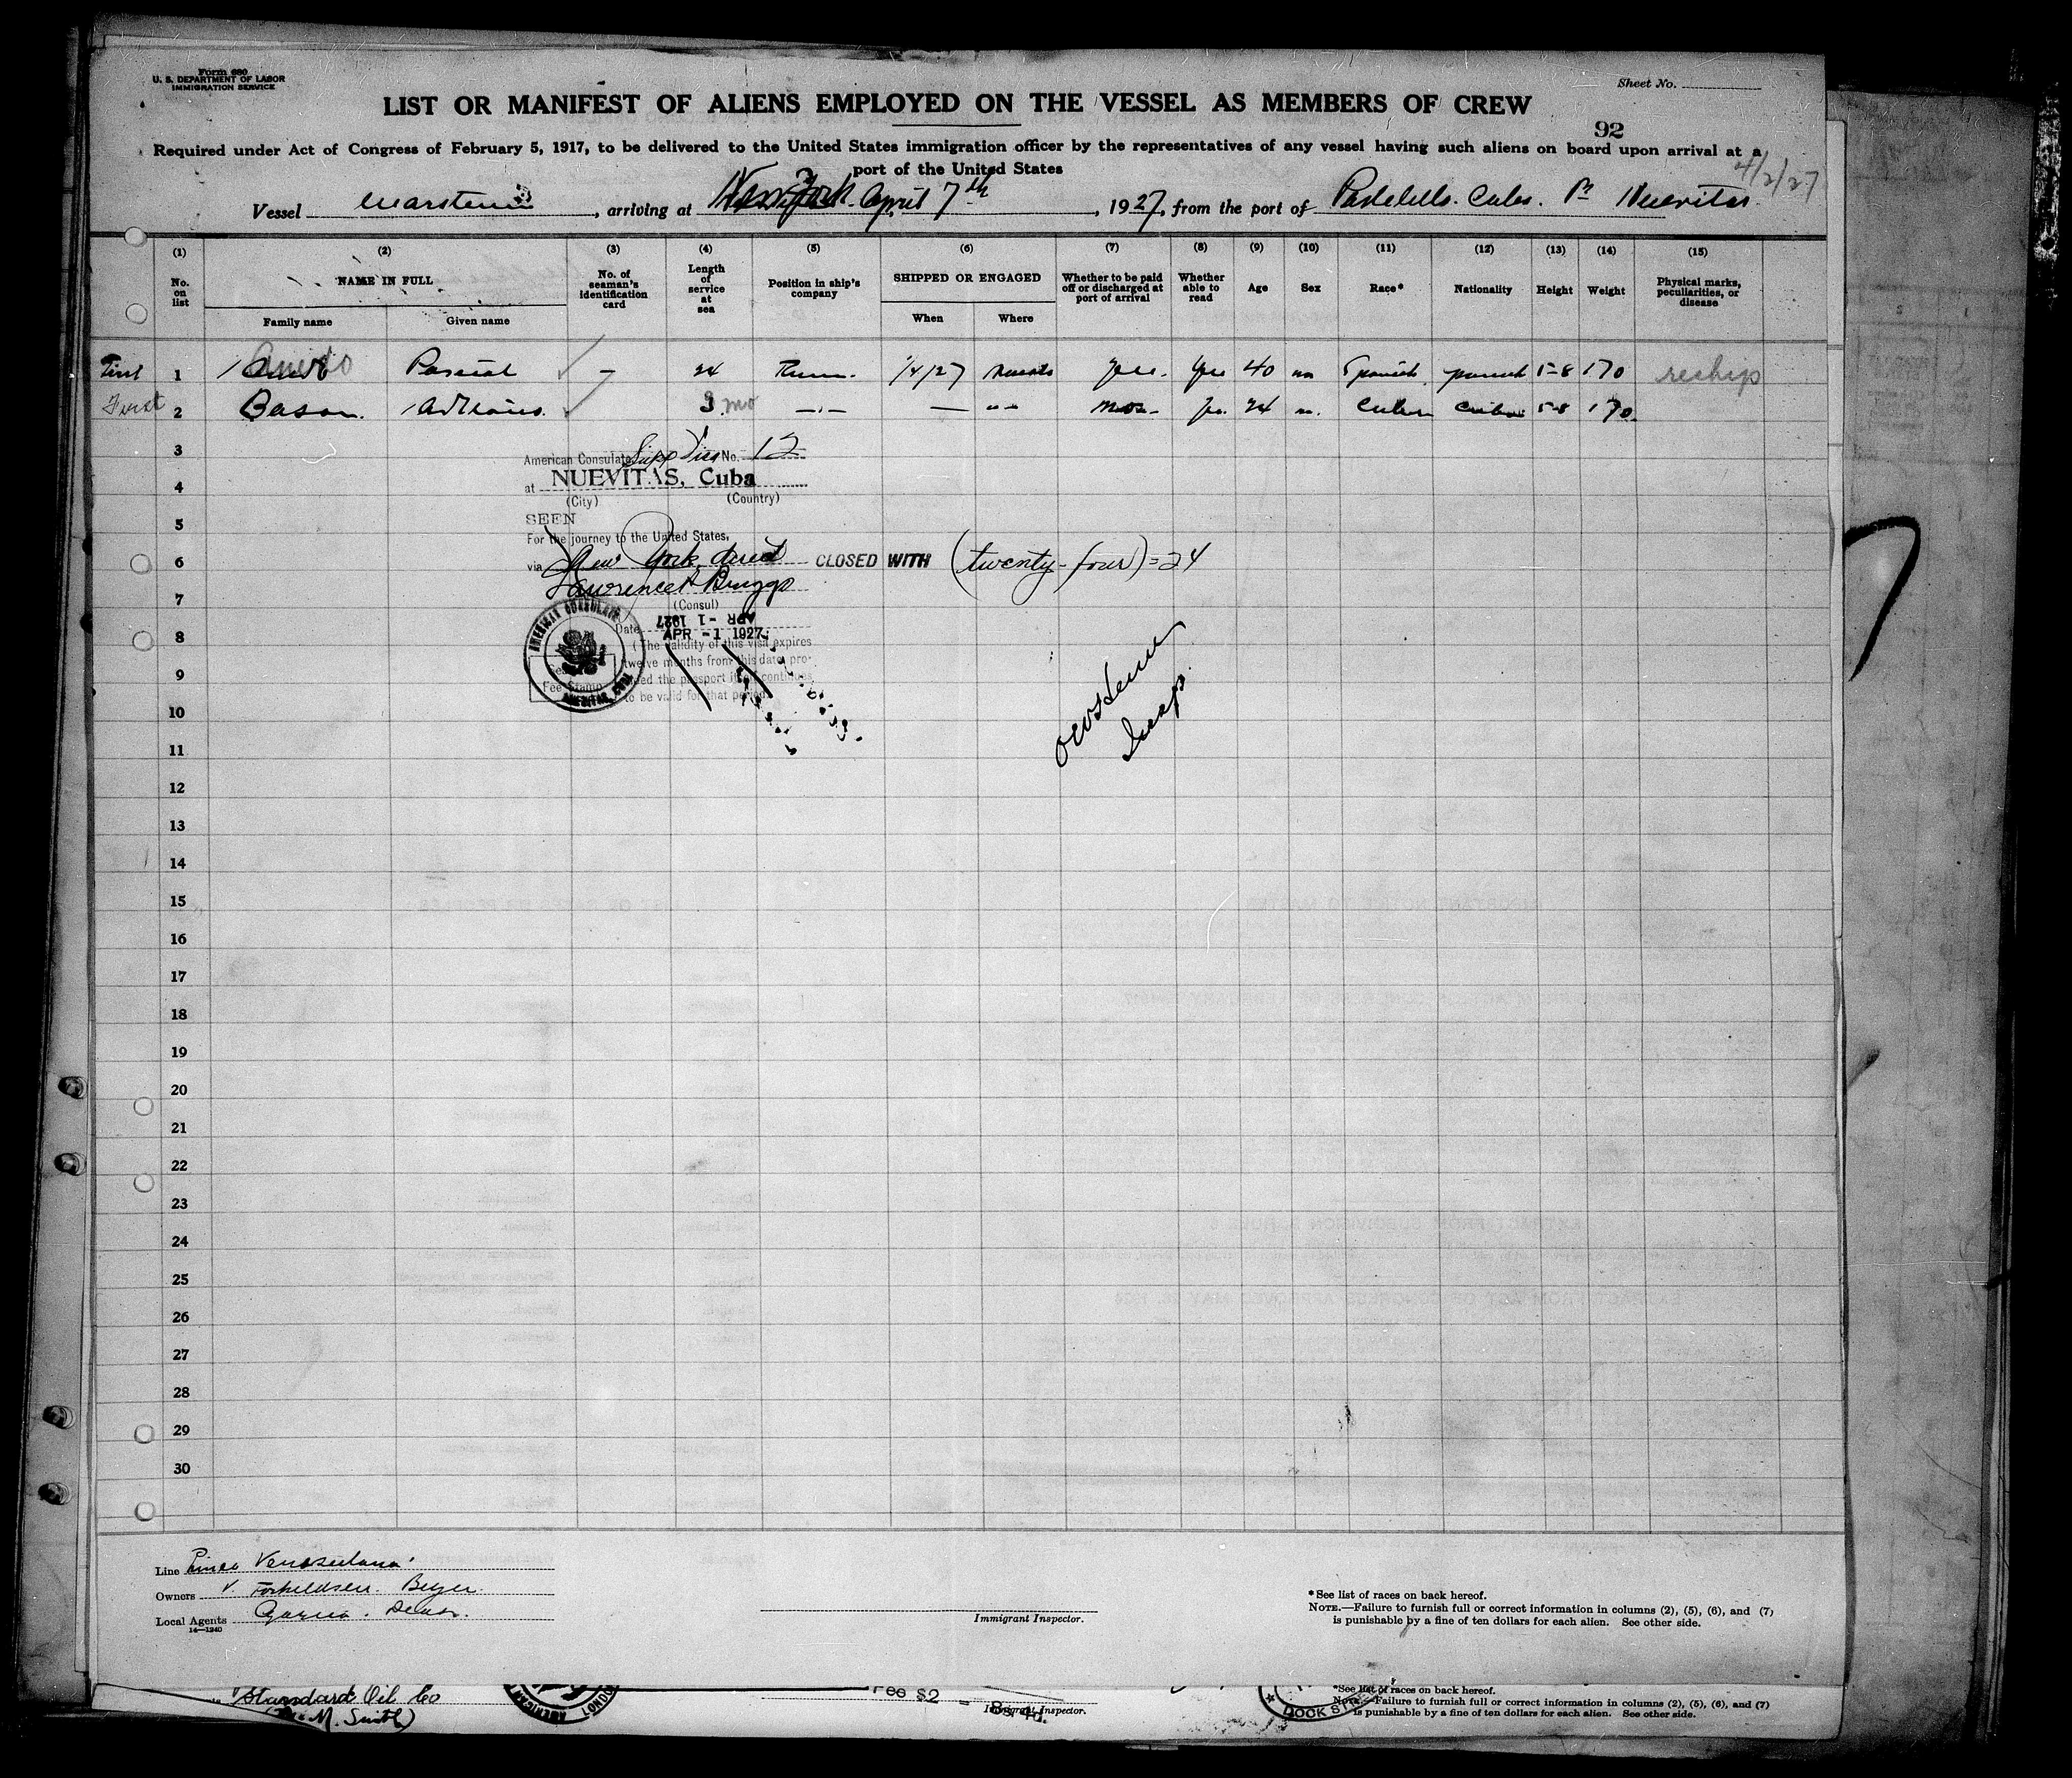 Form 680
U. S. DEPARTMENT OF LABOR
IMMIGRATION SERVICE
Sheet No.
LIST OR MANIFEST OF ALIENS EMPLOYED ON THE VESSEL AS MEMBERS OF CREW
92
Required under Act of Congress of February 5, 1917, to be delivered to the United States immigration officer by the representatives of any vessel having such aliens on board upon arrival at a
port of the United States
4/2/27
Vessel , arriving at New York April 7th, 1927, from the port of Cuba. Nuevitas.
(1) (2) (3) (4) (5) (6) (7) (8) (9) (10) (11) (12) (13) (14) (15)
No. on list NAME IN FULL No. of seaman's identification card Length of service at sea Position in ship's company SHIPPED OR ENGAGED Whether to be paid off or discharged at port of arrival Whether able to read Age Sex Race* Nationality Height Weight Physical marks, peculiarities, or disease
Family name Given name When Where
First 1 Pascual – 24 1/4/27 Yes. Yes 40 m Spanish Spanish 5-8 170 reship
First 2 Bason. 3 mo 24 m. Cuban Cuban 5-8 170.
3
American Consulate No. 12
4
at NUEVITAS, Cuba
(City) (Country)
5
SEEN
For the journey to the United States,
6
via New York direct CLOSED WITH (twenty-four) = 24
7
Lawrence Briggs
(Consul)
APR -1 1927
8
Date APR -1 1927
(The validity of this visa expires
twelve months from this date, pro-
9
vided the passport continues
Fee Stamp to be valid for that period.)
AMERICAN CONSULATE
NUEVITAS, CUBA
10
11
12
13
14
15
16
17
18
19
20
21
22
23
24
25
26
27
28
29
30
Line Linea Venezuelana
Owners
Local Agents
14—1240
Immigrant Inspector.
*See list of races on back hereof.
NOTE.—Failure to furnish full or correct information in columns (2), (5), (6), and (7)
is punishable by a fine of ten dollars for each alien. See other side.
Standard Oil Co
M. Smith)
Fee $2
Immigrant Inspector.
DOCK STREET
*See list of races on back hereof.
NOTE.—Failure to furnish full or correct information in columns (2), (5), (6), and (7)
is punishable by a fine of ten dollars for each alien. See other side.